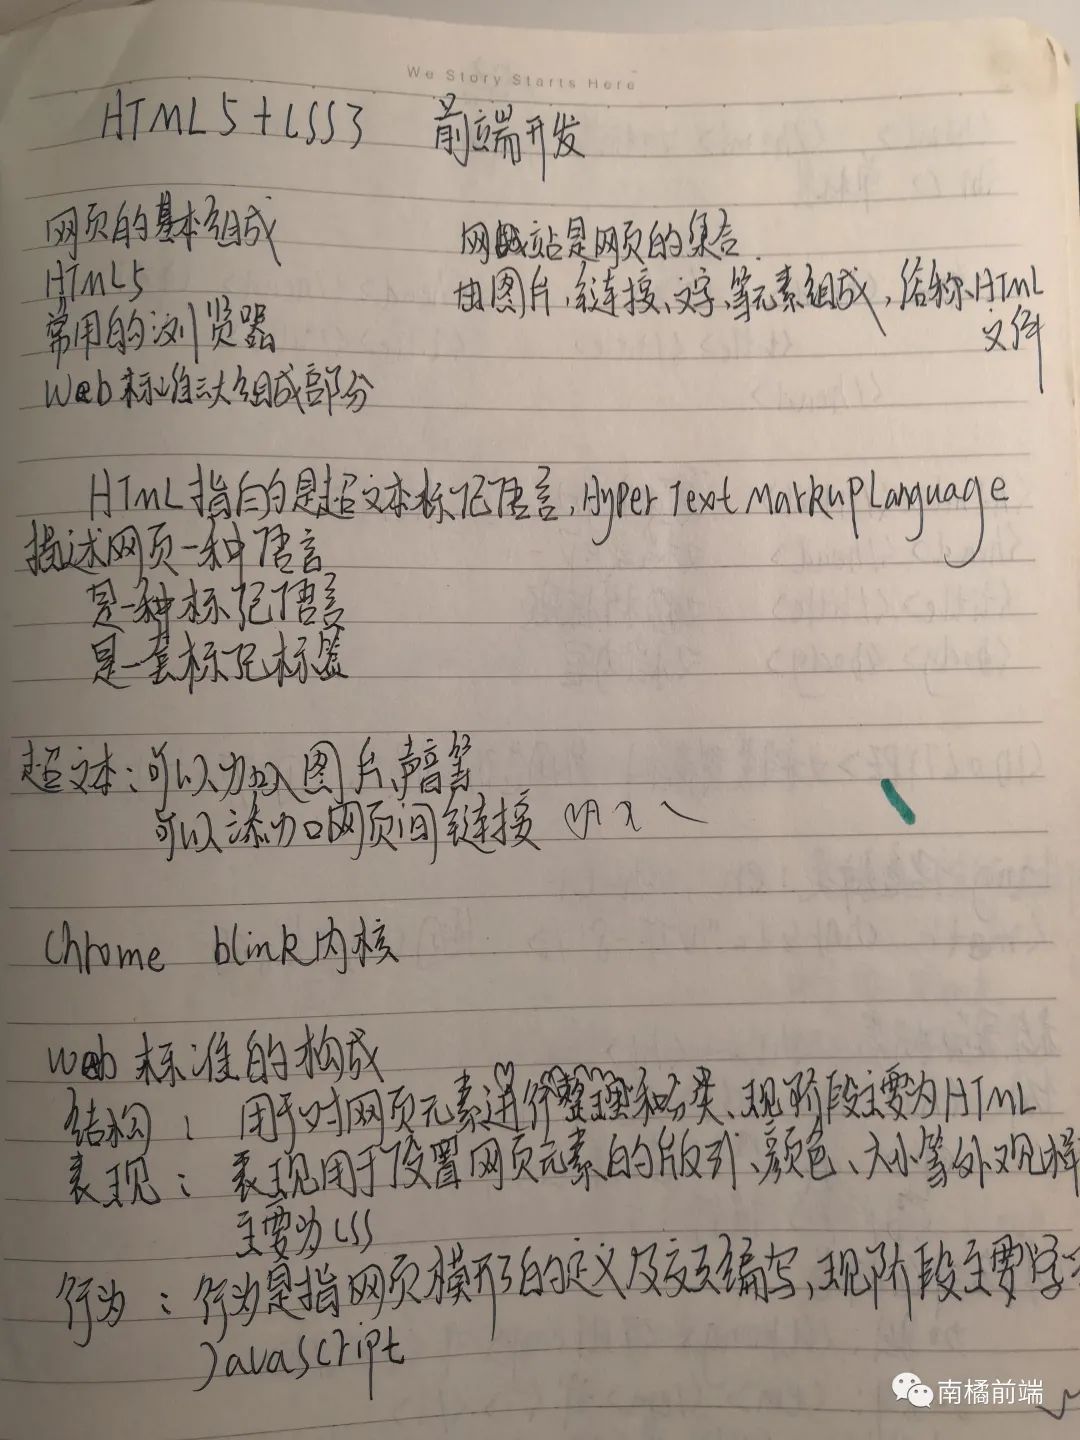 We Story Starts Here
HTML5+CSS3 前端开发
网页的基本组成
HTML5
常用的浏览器
Web标准三大组成部分
网站是网页的集合.
由图片,链接、文字、等元素组成,俗称HTML
文件
HTML指的是超文本标记语言,Hyper Text Markup Language
描述网页一种语言
是一种标记语言
是一套标记标签
超文本:可以加入图片,声音等
可以添加网页间链接
Chrome blink内核
web标准的构成
结构: 用于对网页元素进行整理和分类、现阶段主要为HTML
表现: 表现用于设置网页元素的版式、颜色、大小等外观样
主要为CSS
行为: 行为是指网页模形的定义及交互编写,现阶段主要学
Javascript
南橘前端